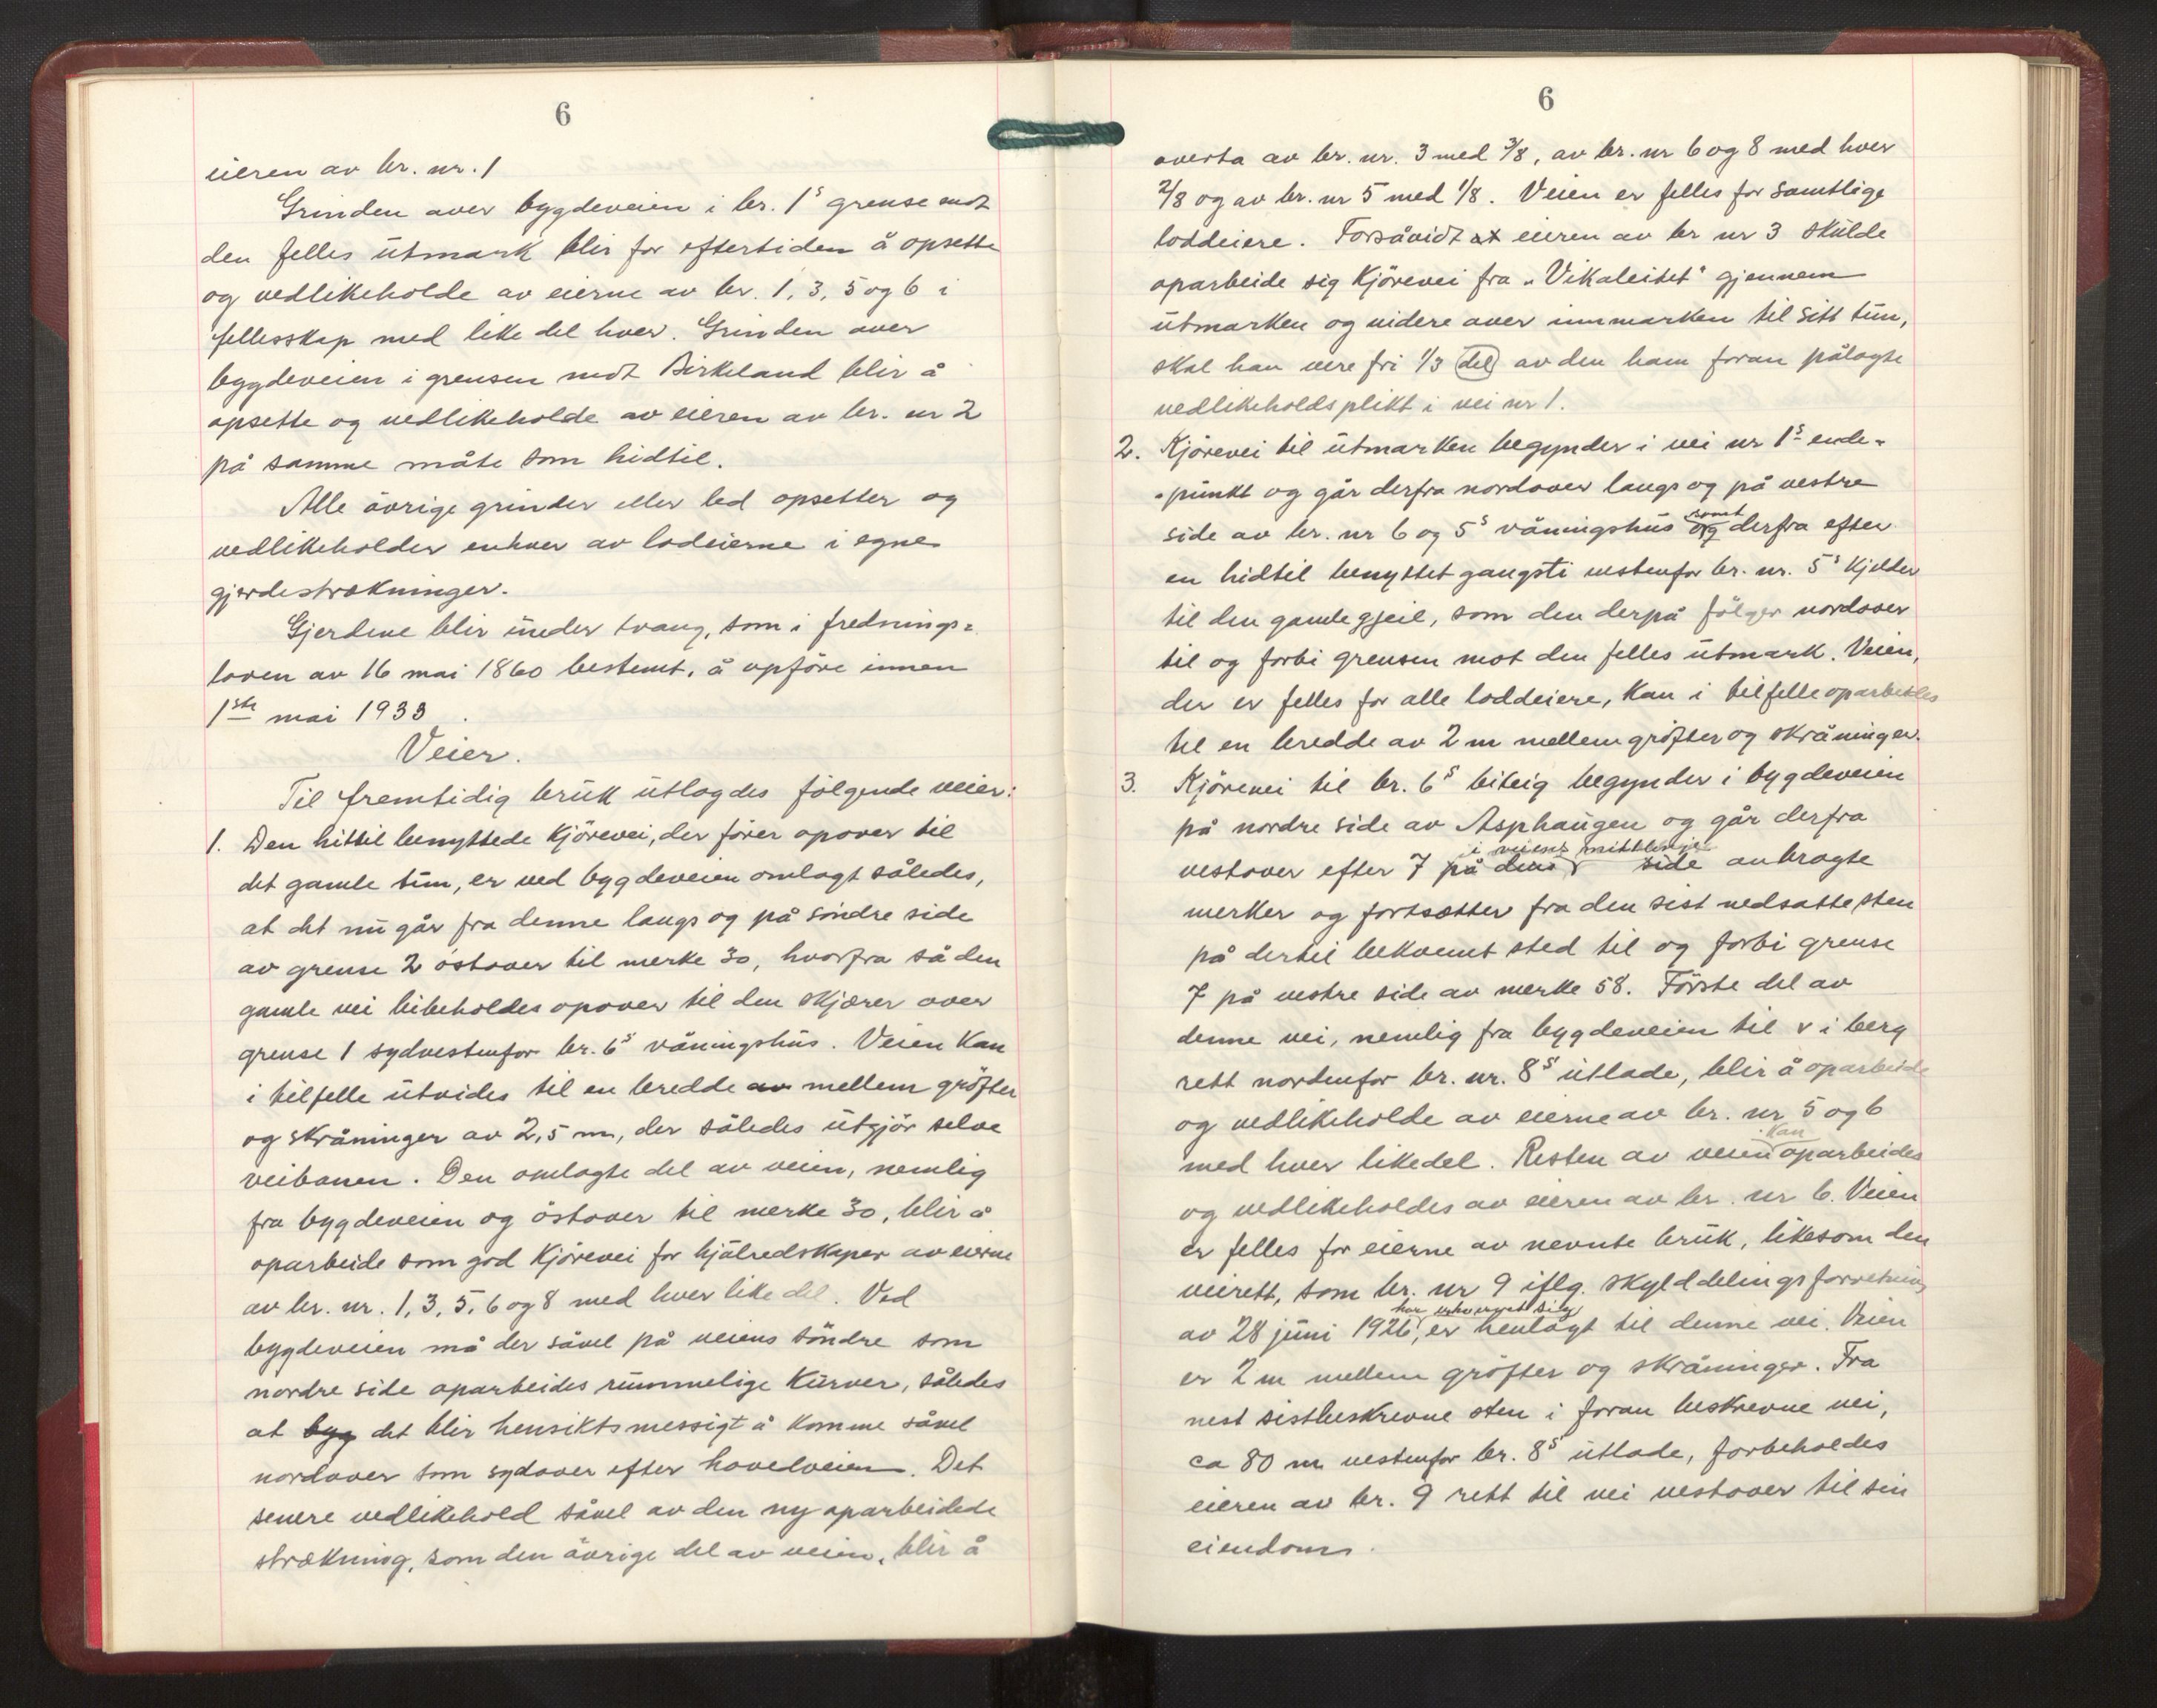 6
eieren av br. nr. 1
Grinden over bygdeveien i br. 1s grense mot
den felles utmark blir for eftertiden å opsette
og vedlikeholde av eierne av br. 1, 3, 5 og 6 i
fellesskap med like del hver. Grinden over
bygdeveien i grensen mot Birkeland blir å
opsette og vedlikeholde av eieren av br. nr 2
på samme måte som hidtil.
Alle övrige grinder eller led opsetter og
vedlikeholder enhver av lodeierne i egne
gjerdestrækninger.
Gjerdene blir under tvang, som i frednings=
loven av 16 mai 1860 bestemt, å opföre innen
1ste mai 1933.
Veier.
Til fremtidig bruk utlagdes fölgende veier:
1. Den hittil benyttede kjörevei, der förer opover til
det gamle tun, er ved bygdeveien omlagt således,
at det nu går fra denne langs og på söndre side
av grense 2 östover til merke 30, hvorfra så den
gamle vei bibeholdes opover til den skjærer over
grense 1 sydvestenfor br. 6s våningshus. Veien kan
i tilfelle utvides til en bredde av mellem gröfter
og skråninger av 2,5 m, der således utgjör selve
veibanen. Den omlagte del av veien, nemlig
fra bygdeveien og östover til merke 30, blir å
oparbeide som god kjörevei for hjulredskaper av eierne
av br. nr. 1, 3, 5, 6 og 8 med hver like del. Ved
bygdeveien må der såvel på veiens söndre som
nordre side oparbeides rummelige kurver, således
at byg det blir hensiktsmessigt å komme såvel
nordover som sydover efter hovedveien. Det
senere vedlikehold såvel av den ny oparbeidede
strækning, som den övrige del av veien, blir å
6
overta av br. nr. 3 med 3/8, av br. nr 6 og 8 med hver
2/8 og av br. nr 5 med 1/8. Veien er felles for samtlige
loddeiere. Forsåvidt at eieren av br nr 3 skulde
oparbeide sig kjörevei fra "Vikaleitet" gjennem
utmarken og videre over innmarken til sitt tun,
skal han være fri 1/3 del av den ham foran pålagte
vedlikeholdsplikt i vei nr 1.
2. Kjörevei til utmarken begynder i vei nr 1s ende-
-punkt og går derfra nordover langs og på vestre
side av br. nr 6 og 5s våningshus og samt derfra efter
en hidtil benyttet gangsti vestenfor br. nr. 5s kjelder
til den gamle gjeil, som den derpå fölger nordover
til og forbi grensen mot den felles utmark. Veien,
der er felles for alle loddeiere, kan i tilfelle oparbeides
til en bredde av 2 m mellem gröfter og skråninger.
3. Kjörevei til br. 6s biteig begynder i bygdeveien
på nordre side av Asphaugen og går derfra
i veiens midtlinje
vestover efter 7 på dens side anbragte
merker og fortsætter fra den sist nedsatte sten
på dertil bekvemt sted til og forbi grense
7 på vestre side av merke 58. Förste del av
denne vei, nemlig fra bygdeveien til v i berg
rett nordenfor br. nr. 8s utlade, blir å oparbeide
og vedlikeholde av eierne av br. nr 5 og 6
med hver likedel. Resten av veien kan oparbeides
og vedlikeholdes av eieren av br. nr 6. Veien
er felles for eierne av nevnte bruk, likesom den
veirett, som br. nr 9 iflg. skylddelingsforretning
av 28 juni 1926, har erhvervet sig er henlagt til denne vei. Veien
er 2 m mellem gröfter og skråninger. Fra
nest sistbeskrevne sten i foran beskrevne vei,
ca 80 m vestenfor br. 8s utlade, forbeholdes
eieren av br. 9 rett til vei vestover til sin
eiendom.